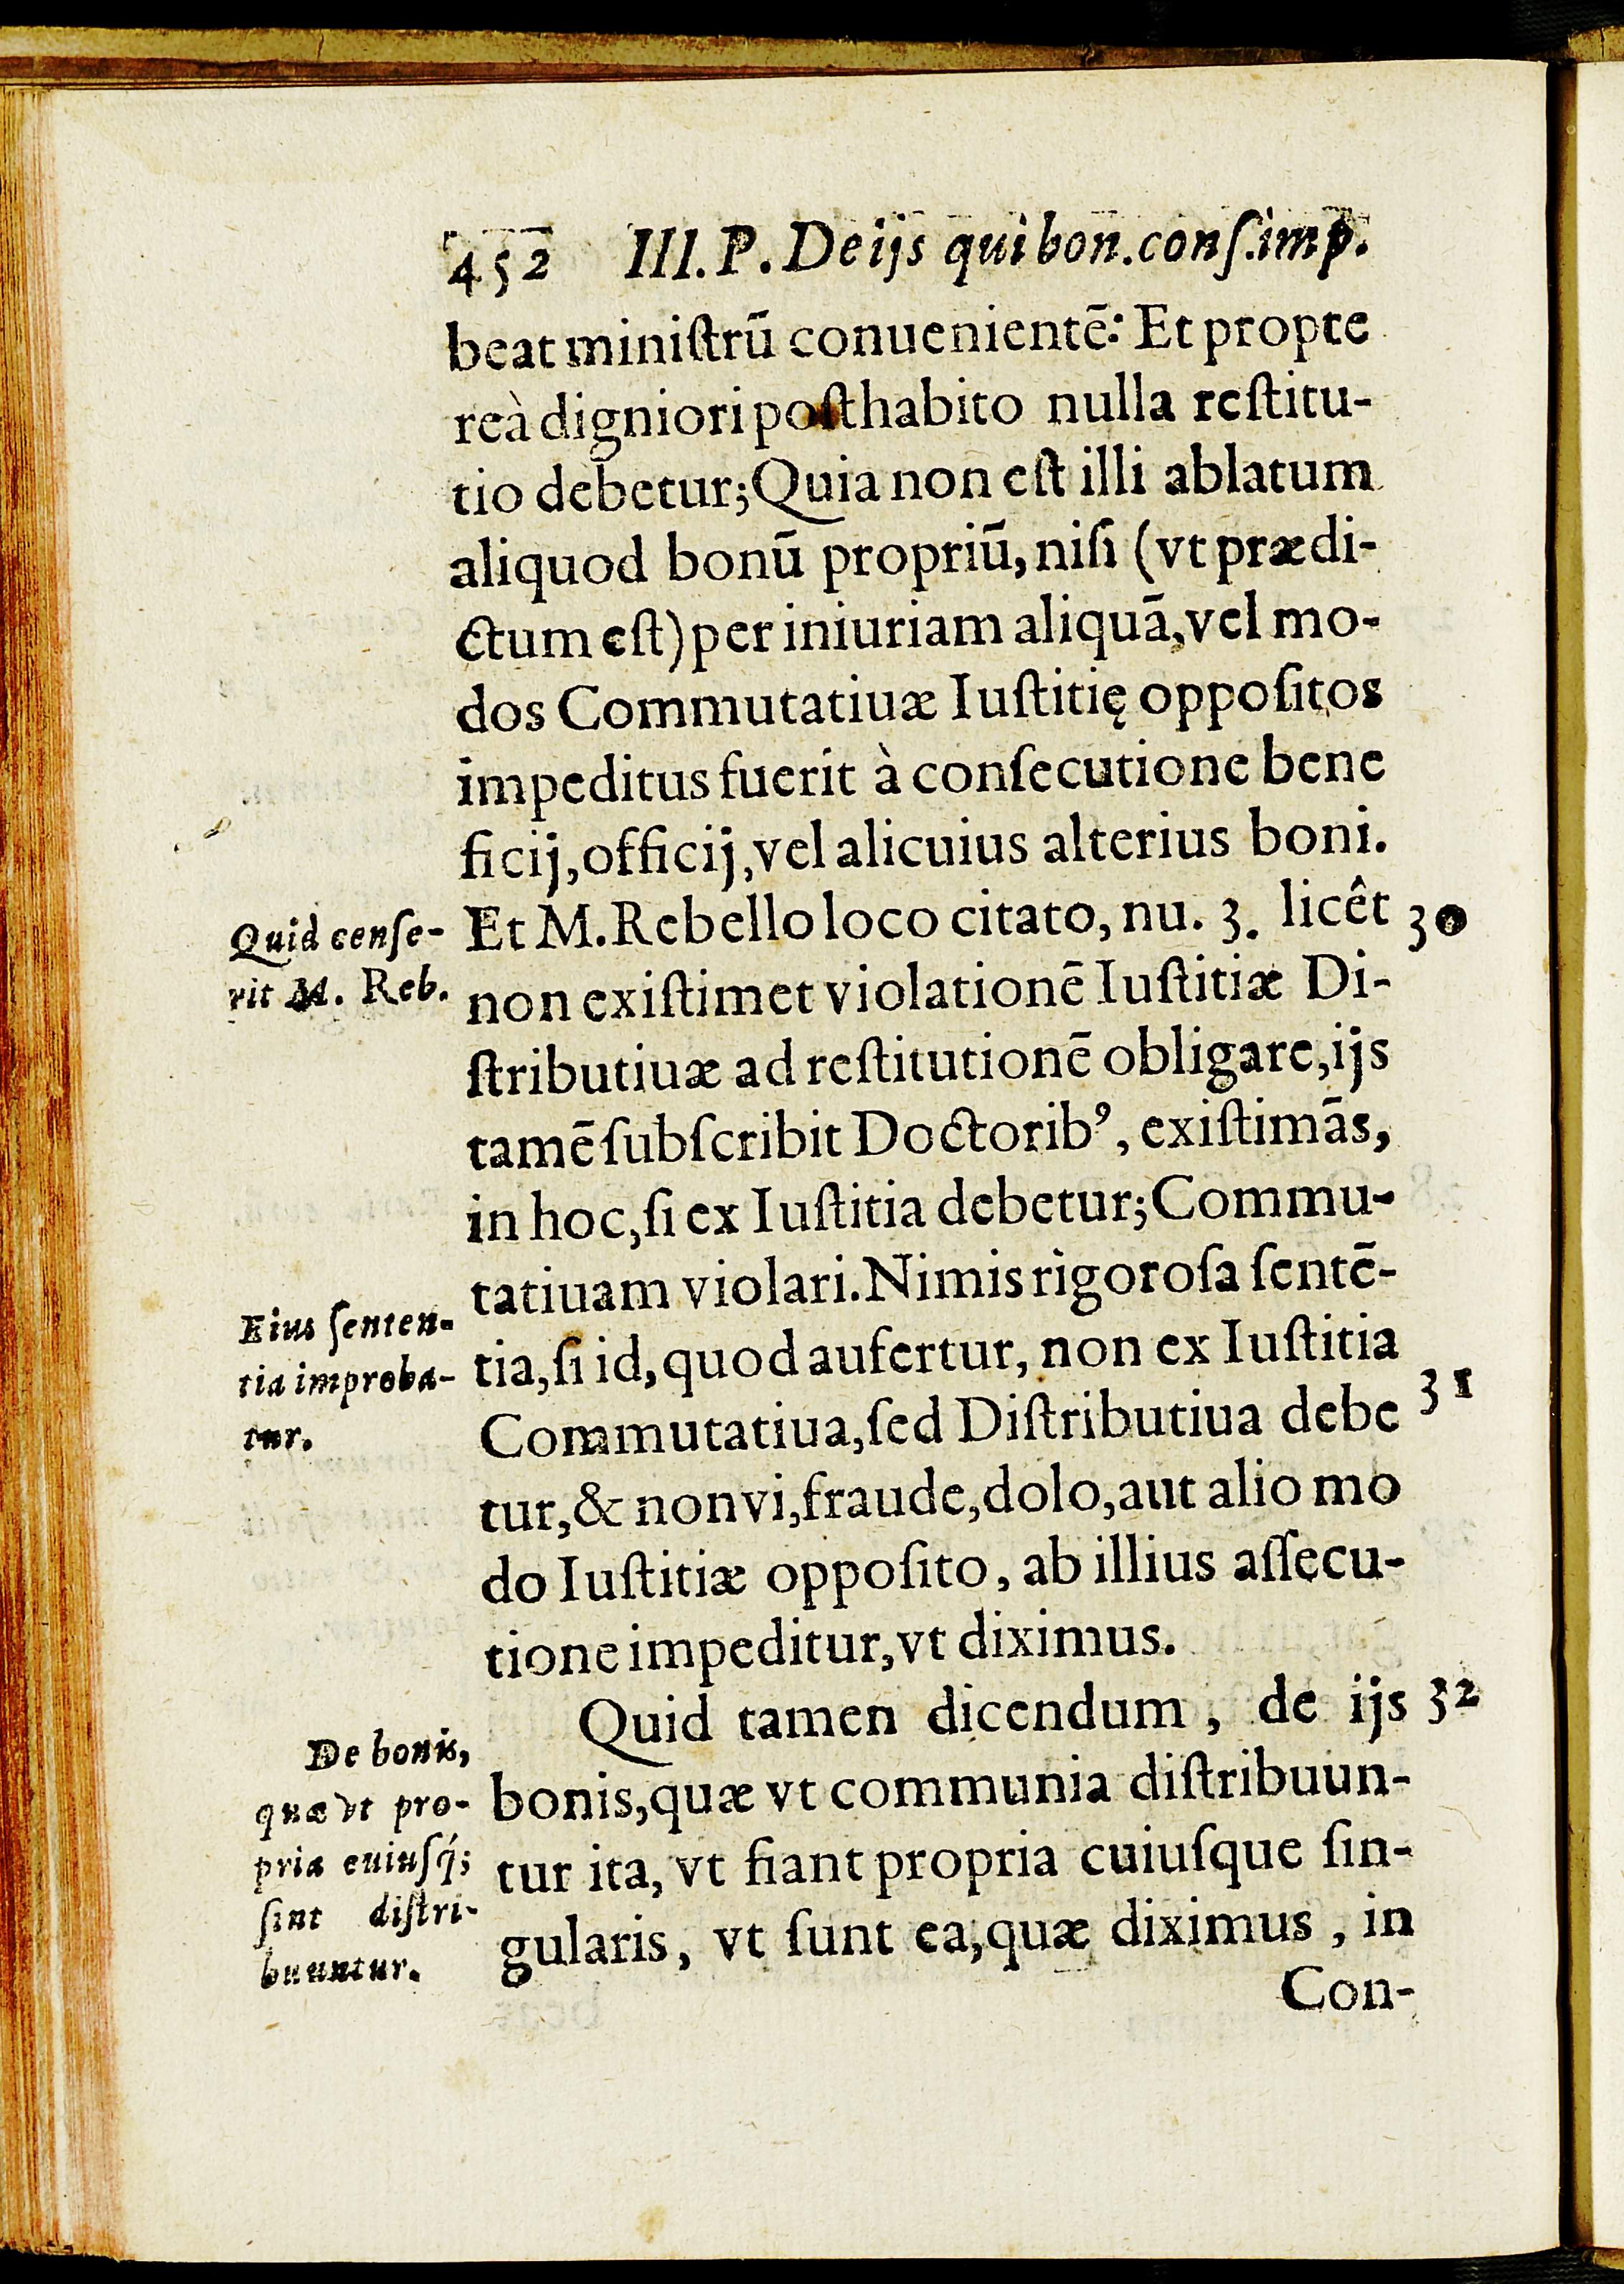 452 III. P. De ijs qui bon. conſ. imp.
beat miniſtrū conuenientē: Et propte
reà digniori poſthabito nulla reſtitu-
tio debetur; Quia non eſt illi ablatum
aliquod bonū propriū, niſi (vt prædi-
ctum eſt) per iniuriam aliquā, vel mo-
dos Commutatiuæ Iuſtitię oppoſitos
impeditus fuerit à conſecutione bene
ficij, officij, vel alicuius alterius boni.
Quid cenſe-
rit M. Reb.
Et M. Rebello loco citato, nu. 3. licêt 30
non exiſtimet violationē Iuſtitiæ Di-
ſtributiuæ ad reſtitutionē obligare, ijs
tamē ſubſcribit Doctorib⁹, exiſtimās,
in hoc, ſi ex Iuſtitia debetur; Commu-
tatiuam violari. Nimis rigoroſa ſentē-
Eius ſenten-
tia improba-
tur.
tia, ſi id, quod aufertur, non ex Iuſtitia
Commutatiua, ſed Diſtributiua debe 31
tur, & non vi, fraude, dolo, aut alio mo
do Iuſtitiæ oppoſito, ab illius aſſecu-
tione impeditur, vt diximus.
Quid tamen dicendum, de ijs 32
De bonis,
quæ vt pro-
pria cuiuſq́;
ſint diſtri-
buuntur.
bonis, quæ vt communia diſtribuun-
tur ita, vt fiant propria cuiuſque ſin-
gularis, vt ſunt ea, quæ diximus, in
Con-